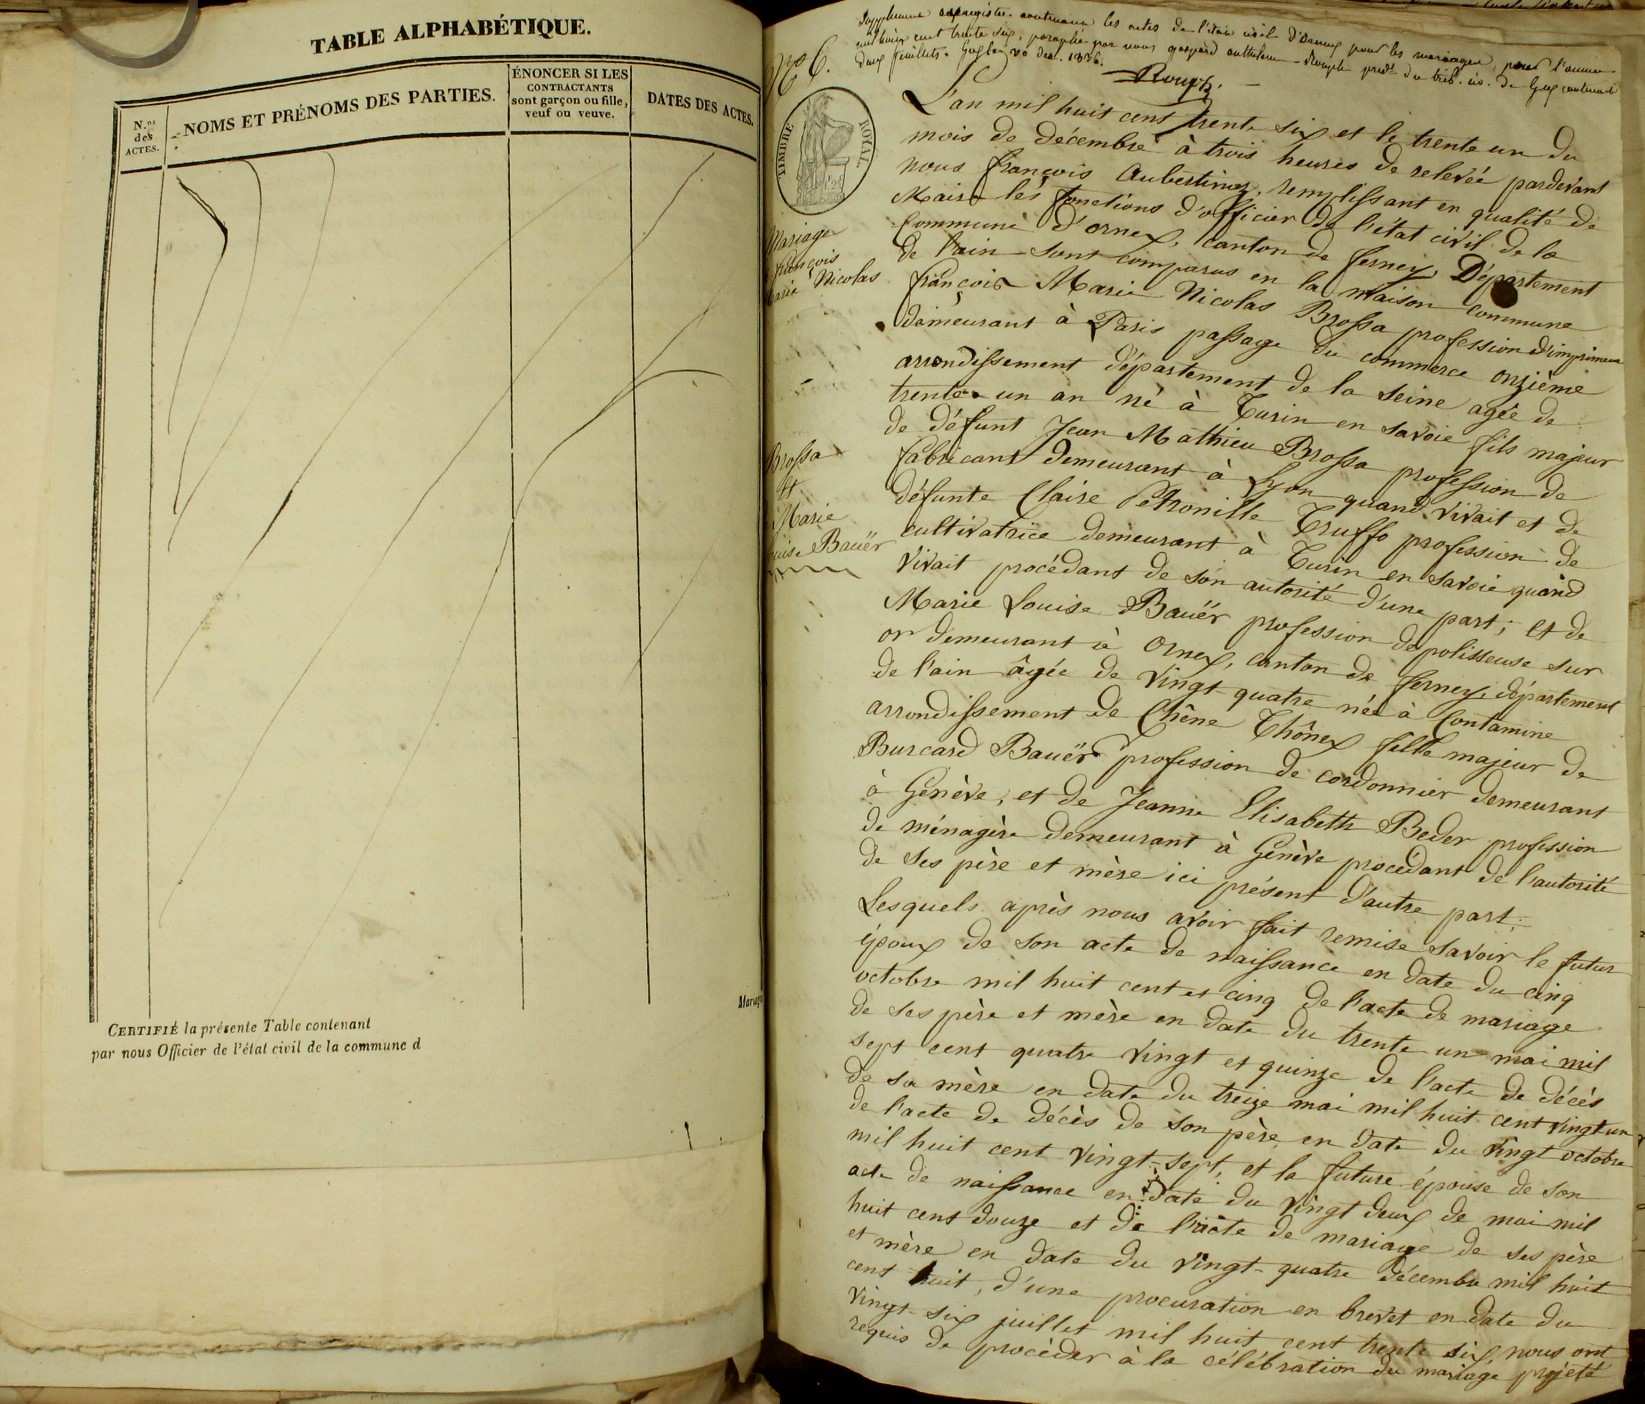 TABLE ALPHABÉTIQUE.
N.os des ACTES.
NOMS ET PRÉNOMS DES PARTIES.
ÉNONCER SI LES CONTRACTANTS sont garçon ou fille, veuf ou veuve.
DATES DES ACTES.
CERTIFIÉ la présente Table contenant
par nous Officier de l'état civil de la commune d
Mariag
N° 6.
Supplément au registre contenant les actes de l'état civil d'Ornex pour les mariages, pour l'année
mil huit cent trente six, paraphé par nous
deux feuillets. Gex le 20 déc. 1836.
Rouph.
TIMBRE ROYAL
Mariage
françois
Marie Nicolas
Brossa
et
Marie
Louise Bauër
L'an mil huit cent trente six et le trente un du
mois de décembre à trois heures de relevée pardevant
nous françois Aubertin, remplissant en qualité de
Maire les fonctions d'officier de l'état civil de la
Commune d'ornex, canton de ferney, Département
de l'ain sont comparus en la maison commune
françois Marie Nicolas Brossa profession d'imprimeur
demeurant à Paris passage du commerce onzième
arrondissement département de la seine agée de
trente un an né à Turin en savoie fils majeur
de défunt Jean Mathieu Brossa profession de
fabricant demeurant à Lyon quand vivait et de
défunte Claire Pétronille Truffo profession de
cultivatrice demeurant à Turin en savoie quand
vivait procédant de son autorité d'une part; et de
Marie Louise Bauër profession de polisseuse sur
or demeurant à ornex, canton de ferney, département
de l'ain âgée de vingt quatre née à Contamine
arrondissement de Chêne Thônex fille majeur de
Burcard Bauër profession de cordonnier demeurant
à Genève, et de Jeanne Elisabeth Beder profession
de ménagère demeurant à Genève procédant de l'autorité
de ses père et mère ici présent d'autre part;
Lesquels après nous avoir fait remise savoir le futur
époux de son acte de naissance en date du cinq
octobre mil huit cent et cinq de l'acte de mariage
de ses père et mère en date du trente un mai mil
sept cent quatre vingt et quinze de l'acte de décès
de sa mère en date du treize mai mil huit cent vingt un
de l'acte de décès de son père en date du vingt octobre
mil huit cent vingt-sept, et la future épouse de son
acte de naissance en date du vingt deux de mai mil
huit cent douze et de l'acte de mariage de ses père
et mère en date du vingt-quatre décembre mil huit
cent huit, d'une procuration en brevet en date du
vingt-six juillet mil huit cent trente six, nous ont
requis de procéder à la célébration du mariage projeté